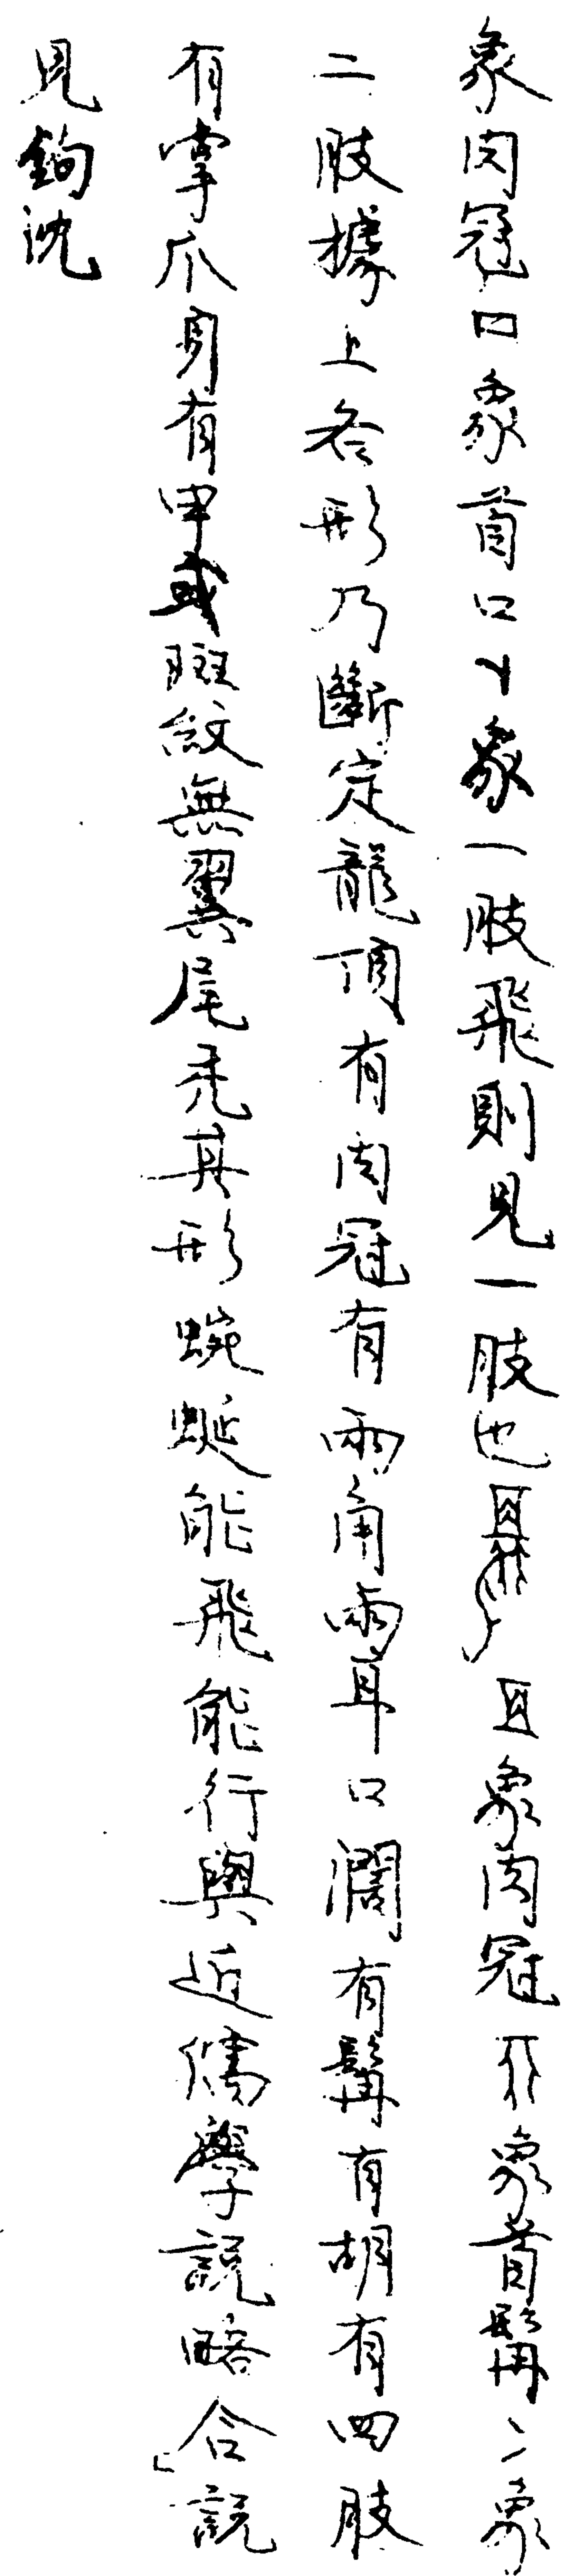 象肉冠口象首口丫象一肢飛則見一肢也且象肉冠象首髯冫象
二肢據上各形乃斷定龍頂有肉冠有兩角兩耳口濶有髯有胡有四肢
有掌爪身有甲或斑紋無翼尾禿其形蜿蜒能飛能行與近儒學說略合說
見鉤沈